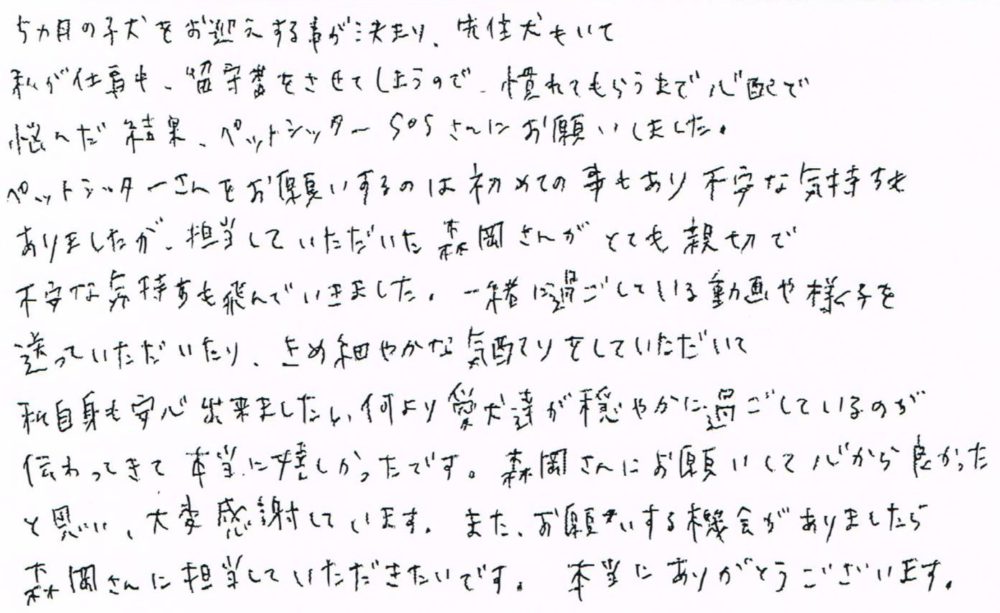 5カ月の子犬をお迎えする事が決まり、先住犬もいて
私が仕事中、留守番をさせてしまうので、慣れてもらうまで心配で
悩んだ結果、ペットシッターSOSさんにお願いしました。
ペットシッターさんをお願いするのは初めての事もあり不安な気持ちも
ありましたが、担当していただいた森岡さんがとても親切で
不安な気持ちも飛んでいきました。一緒に過ごしている動画や様子を
送っていただいたり、きめ細やかな気配りをしていただいて
私自身も安心出来ましたし、何より愛犬達が穏やかに過ごしているのが
伝わってきて本当に嬉しかったです。森岡さんにお願いして心から良かった
と思い、大変感謝しています。また、お願いする機会がありましたら
森岡さんに担当していただきたいです。本当にありがとうございます。